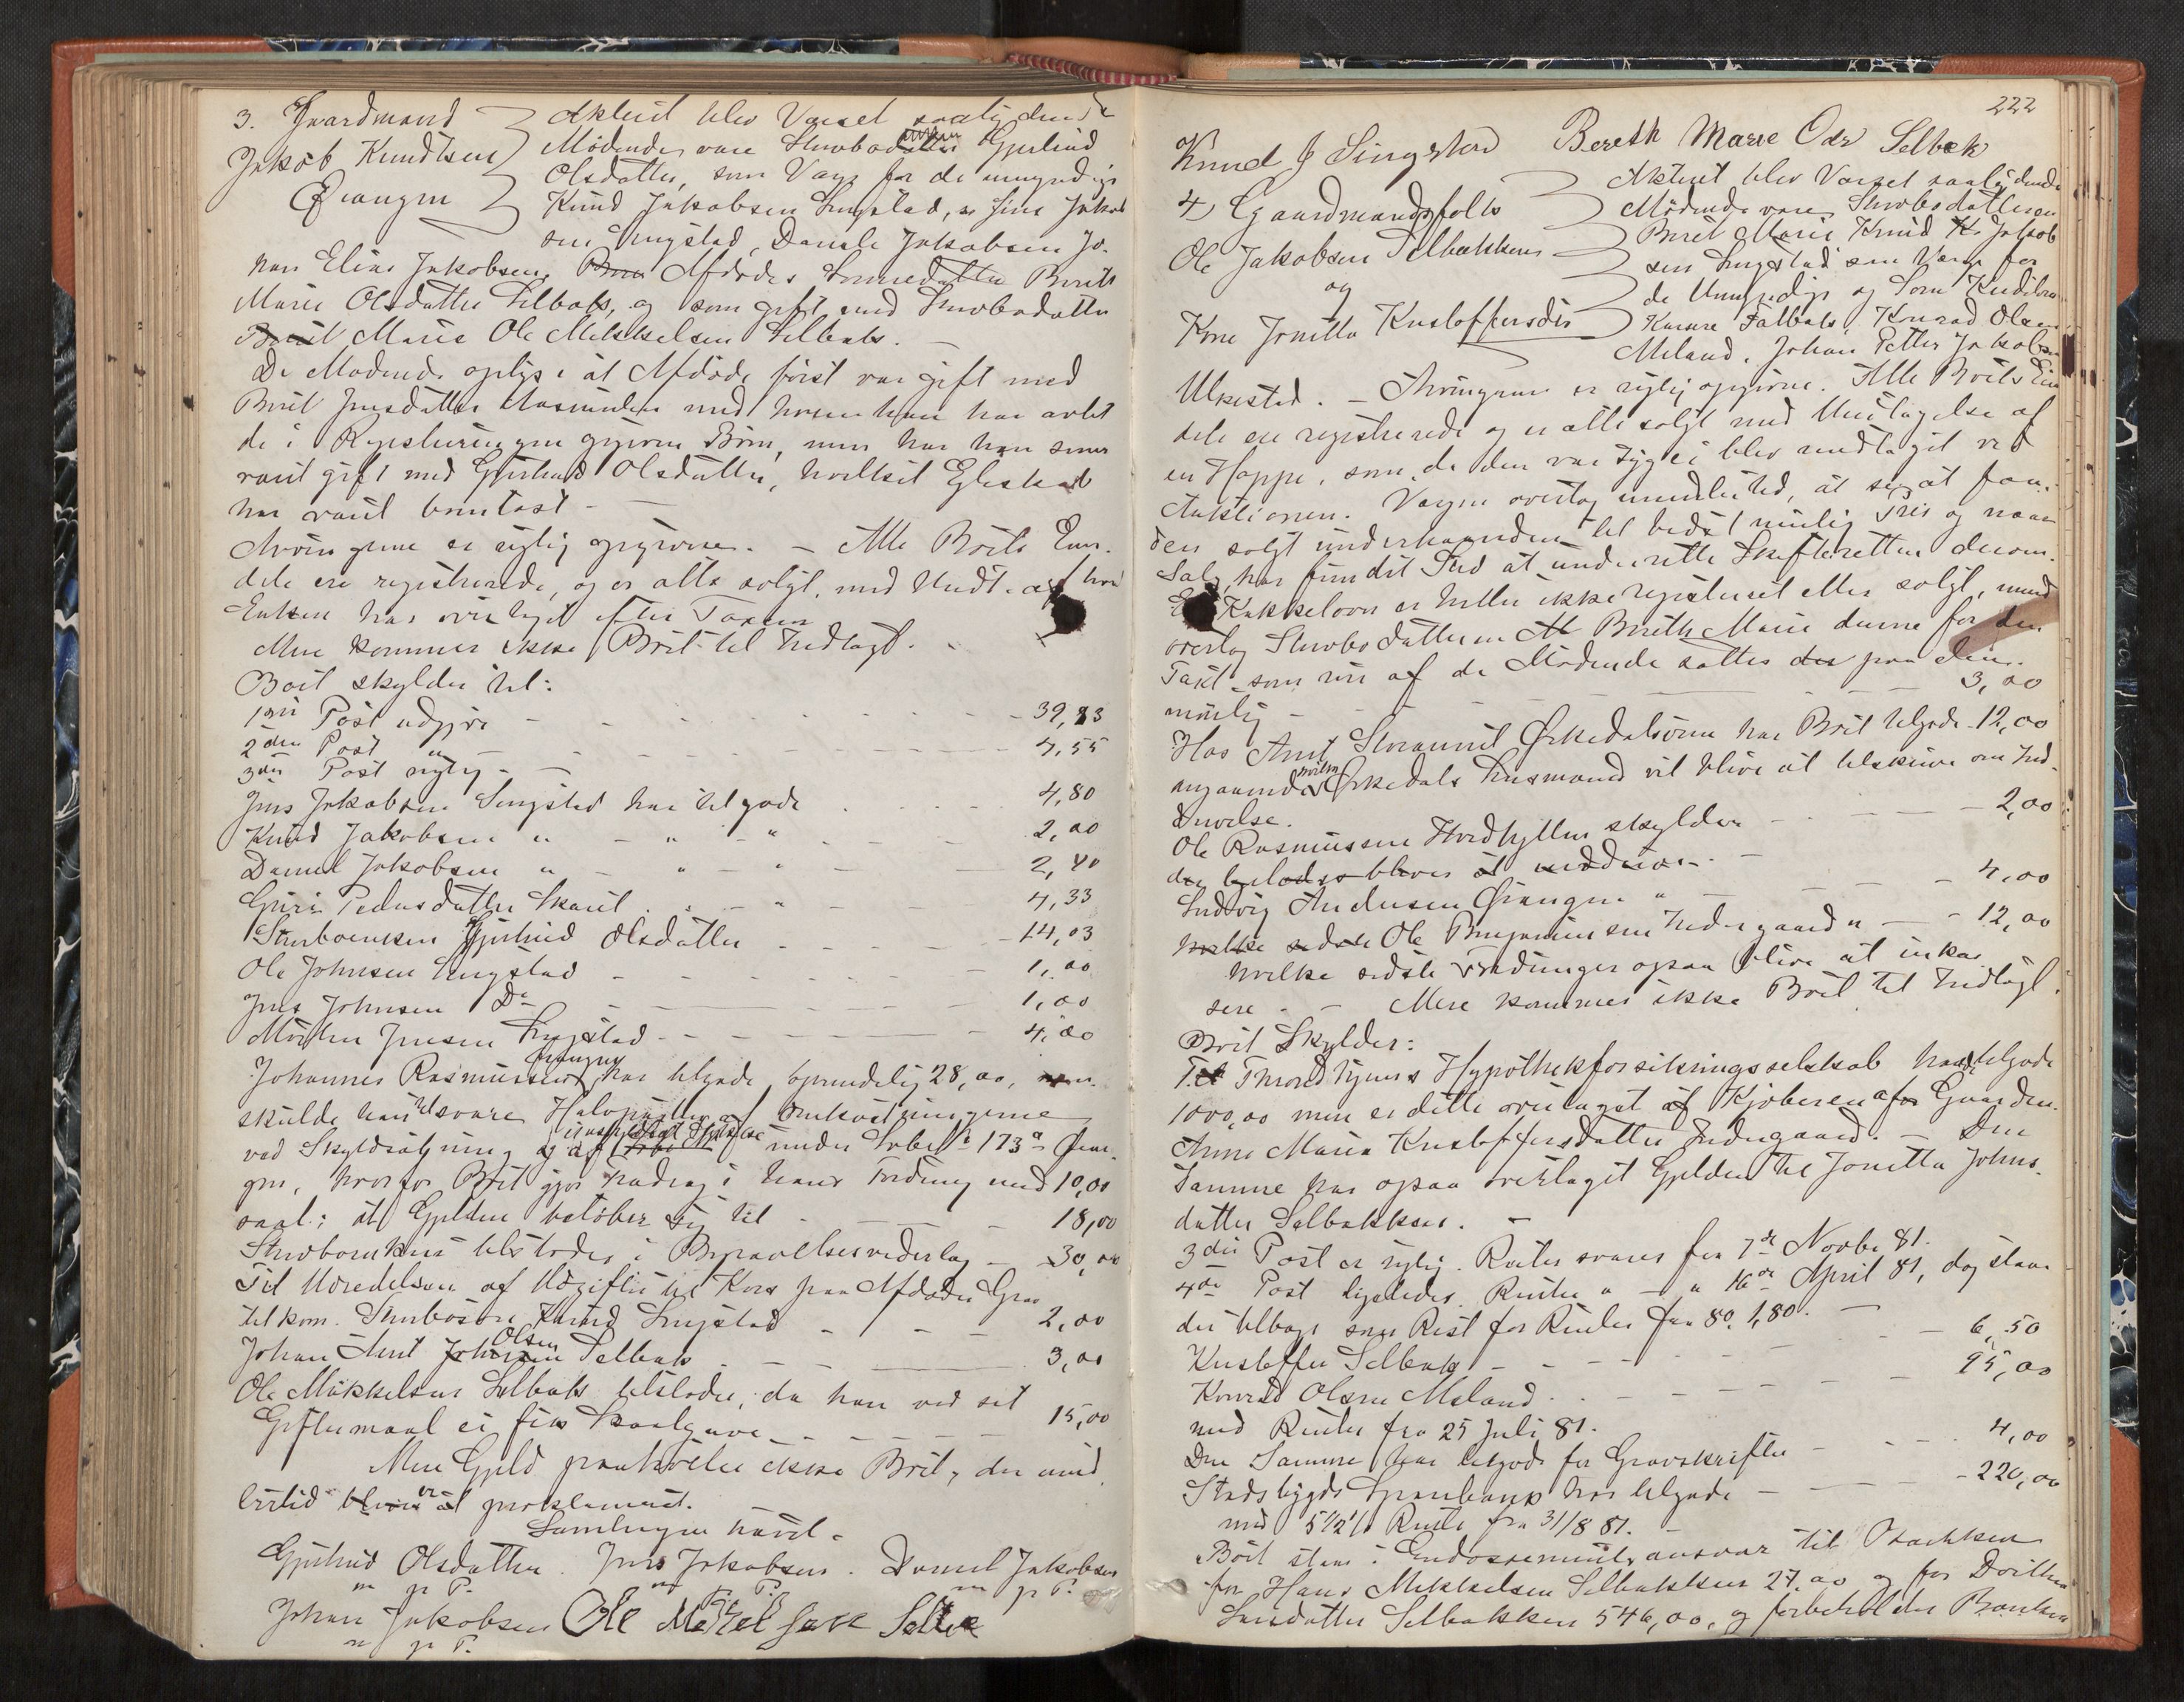 3. Gaardmand
Jakob Knudtsen
Øvangen
Aktuit blev Varsel saalydende
Mødende vare Stervboenken Gjertrud
Olsdatter, som Værge for de umyndige
Knud Jakobsen Singstad, Jens Jakob-
sen Singstad, Daniel Jakobsen Jo-
han Elias Jakobsen, Afdødes Sønnedatter Berith
Marie Olsdatter Selbak, og som gift med Stervbodatter
Berit Marie Ole Mikkelsen Selbak.
De Mødende oplyse at Afdøde først var gift med
Berit Jensdatter med hvem han har avlet
de i Registreringen opgivne Børn, men har han senere
været gift med Gjertrud Olsdatter, hvilket Egteskab
har været barnløst.
Arvingerne er rigtig opgivne. - Alle Boets Eien-
dele ere registrerede, og er alt solgt, med Undt. af hvad
Enken har overtaget efter Taxten
Mere kommer ikke Boet til Indtægt.
Boet skylder til:
1ste Post udgjør - 39,83
2den Post " - 4,55
3die Post rigtig -
Jens Jakobsen Singstad har tilgode 4,80
Knud Jakobsen " - " - " 2,00
Daniel Jakobsen " - " - " 2,40
Guri Pedersdatter Skaret . - " - 4,33
Stervboenken Gjertrud Olsdatter - 14,03
Ole Johnsen Singstad - 1,00
Jens Johnsen Do - 1,00
Morten Jensen Singstad - 4,00
Johannes Rasmussen Øvangen har tilgode oprindelig 28,00, men
skulde han tilsvare Halvparten af Omkostningerne
ved Skyldsætning og af under Løbe No 173a Øvan-
gen, hvorfor Boet gjør Fradrag i hans Fordring med 10,00
saal: at Gjelden beløber sig til - 18,00
Stervboenken tilstodes i Begravelsesvederlag - 30,00
Til Udredelsen af Udgifter til Kors paa Afdødes Grav
tilkom. Stervbosøn Knud Singstad - 2,00
Johan Arnt Olsen Selbak - 3,00
Ole Mikkelsen Selbak tilstodes, da han ved sit
Giftermaal ei fik Skaalgave - 15,00
Mere Gjeld paahviler ikke Boet, der imid-
lertid er proklameret.
Samlingen hævet.
Gjertrud Olsdatter . Jens Jakobsen . Daniel Jakobsen
m p P. m p P. m p P.
Johan Jakobsen Ole Mekkel sen Selbek
m p P.
222
Knud J Singstad Bereth Marie Ods Selbek
4) Gaardmandsfolk
Ole Jakobsen Selbækken
og
Kone Jonetta Kristoffersdtr
Aktuit blev Varsel saalydende
Mødende vare Stervbodatteren
Berit Marie Knud Jakob
sen Singstad som Værge for
de Umyndige og som Kreditor
Konrad Olsen
Meland, Johan Petter Jakobsen
Ulvested. - Arvingerne er rigtig opgivne. Alle Boets Eien
dele ere registrerede og er alt solgt med Undtagelse af
en Hoppe, som, da den var syg ei blev medtaget ved
Auktionen. Værgen overtog imidlertid, at se at faa
den solgt underhaanden til bedst mulig Pris og naar
Salg har fundet Sted at underrette Skifteretten derom.
En Kakkelovn er heller ikke registreret eller solgt, men
overtog Stervbodatteren Berith Marie denne for den
Taxt som nu af de Mødende sattes paa den.
nemlig - 3,00
Hos Arnt Størmmet Ørkedalsøren har Boet tilgode 12,00
angaaende hvilken Ørkedals Lensmand vil blive at tilskrive om Ind-
drivelse.
Ole Rasmussen Hordhyllen skylder - 2,00
Ludvig Andersen Øvangen " - 4,00
Ole Benjaminsen Indergaard " - 12,00
hvilke sidste Fordringer ogsaa blive at inkas
sere. - Mere kommer ikke Boet til Indtægt.
Boet Skylder:
Trondhjems Hypothekforsikringsselskab har tilgode
1000,00 men er dette overtaget af Kjøberen af Gaarden.
Anne Maria Kristoffersdatter Indergaard. - Den
Samme har ogsaa overtaget Gjelden til Jonetta Johns-
datter Selbækken. -
3die Post er rigtig. Renter svares fra 7de Novbr 81.
4de Post ligeledes. Renter " - " 16de April 81, dog staar
der tilbage som Rest for Renter fra 80. 1,80. -
Kristoffer Selbak - 6,50
Konrad Olsen Meland - 95,00
med Renter fra 25 Juli 81.
Den Samme har tilgode for Gravskrifter - 4,00
Stadsbygds Sparebank har tilgode - 220,00
med 5 1/2 % Rente fra 31/8 81.
Boet staar i Endossementsansvar til Banken
for Hans Mikkelsen Selbækken 27,00 og for Dorthea
Larsdatter Selbækken 546,00, og forbeholder Banken